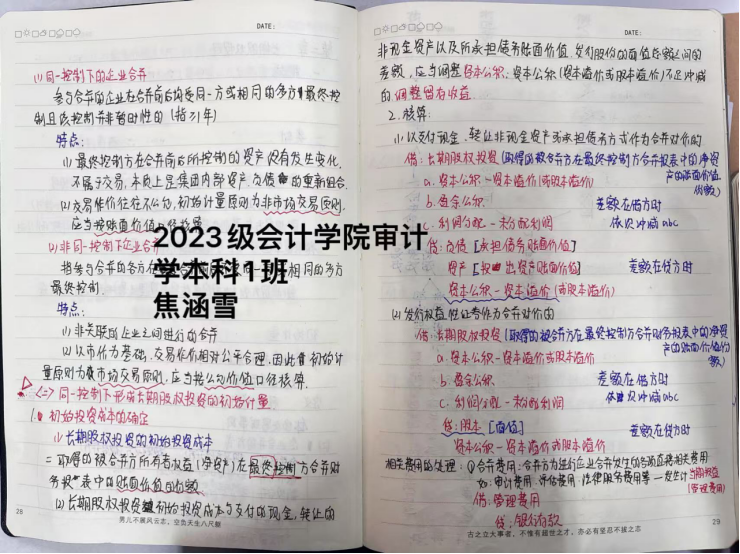 DATE:
(1) 同一控制下的企业合并
参与合并的企业在合并前后均受同一方或相同的多方最终控
制且该控制并非暂时性的 (指≥1年)
特点:
(1) 最终控制方在合并前后所控制的资产没有发生变化,
不属于交易,本质上是集团内部资产、负债的重新组合.
(2) 交易作价往往不公允,初始计量原则为非市场交易原则.
应当按账面价值
2023级会计学院审计
学本科1班
焦涵雪
(2) 非同一控制下企业合并
指参与合并的各方在 相同的多方
最终控制.
特点:
(1) 非关联的企业之间进行的合并
(2) 以市价为基础,交易作价相对公平合理,因此初始计
量原则为市场交易原则,应当按公允价值口径核算.
<二> 同一控制下形成长期股权投资的初始计量
1. 初始投资成本的确定
(1) 长期股权投资的初始投资成本
= 取得的被合并方所有者权益(净资产)在最终控制方合并财
务报表中的账面价值的份额
(2) 长期股权投资初始投资成本与支付的现金、转让的
28
男儿不展风云志,空负天生八尺躯
DATE:
非现金资产以及所承担债务账面价值、发行股份的面值总额之间的
差额,应当调整资本公积;资本公积(资本溢价或股本溢价)不足冲减
的,调整留存收益.
2. 核算:
(1) 以支付现金、转让非现金资产或承担债务方式作为合并对价的
借:长期股权投资 (取得的被合并方在最终控制方合并报表中的净资
产的账面价值份额)
a. 资本公积-资本溢价(或股本溢价)
b. 盈余公积 差额在借方时
c. 利润分配-未分配利润 依次冲减abc
贷:负债 [承担债务账面价值]
资产 [ 出资产账面价值] 差额在贷方时
资本公积-资本溢价(或股本溢价)
(2) 发行权益性证券作为合并对价的
借:长期股权投资 (取得的被合并方在最终控制方合并财务报表中的净资
产的账面价值份额)
a. 资本公积-资本溢价或股本溢价
b. 盈余公积 差额在借方时
c. 利润分配-未分配利润 依次冲减abc
贷:股本 [面值] 差额在贷方时
资本公积-资本溢价或股本溢价
相关费用的处理: ①合并费用:合并方为进行企业合并发生的各项直接相关费用
如:审计费用、评估费用、法律服务费用等→发生计当期损益
(管理费用)
借:管理费用
贷:银行存款
古之立大事者,不惟有超世之才,亦必有坚忍不拔之志
29